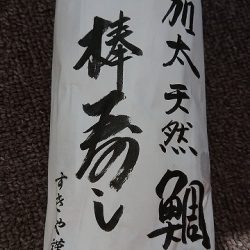 加太天然鯛
棒寿し
すきや